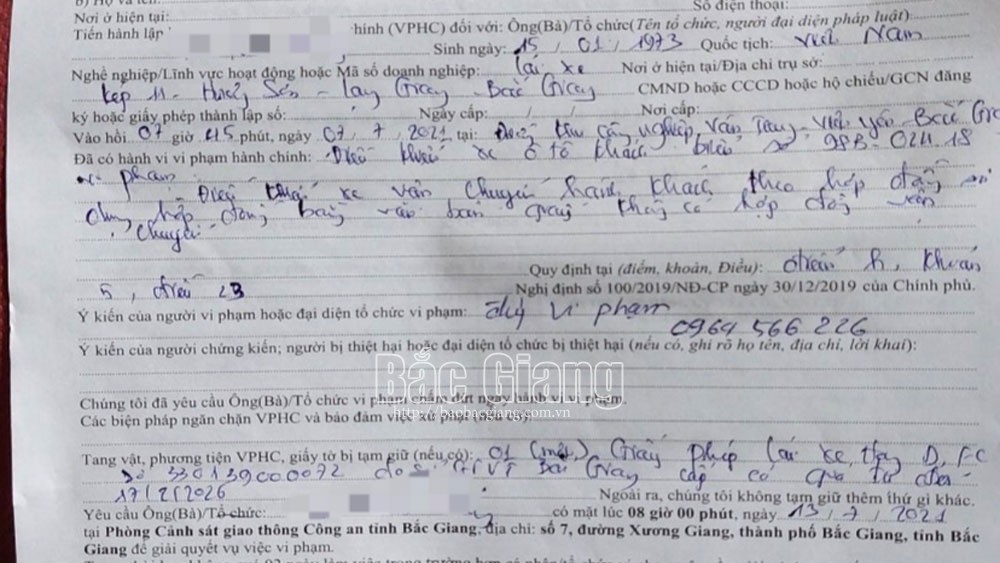 b) Họ và tên:
Nơi ở hiện tại: Số điện thoại:
Tiến hành lập hính (VPHC) đối với: Ông(Bà)/Tổ chức(Tên tổ chức, người đại diện pháp luật):
Sinh ngày: 15 / 01 / 1973 Quốc tịch: Việt Nam
Nghề nghiệp/Lĩnh vực hoạt động hoặc Mã số doanh nghiệp: Lái xe Nơi ở hiện tại/Địa chỉ trụ sở:
Kép 11 - Hương Sơn - Lạng Giang - Bắc Giang CMND hoặc CCCD hoặc hộ chiếu/GCN đăng
ký hoặc giấy phép thành lập số: Ngày cấp: / / Nơi cấp:
Vào hồi 07 giờ 45 phút, ngày 07 / 7 / 2021 tại: Đường khu công nghiệp Vân Trung - Việt Yên - Bắc Gi
Đã có hành vi vi phạm hành chính: Điều khiển xe ô tô khách biển số 98B-024.18
vi phạm
Điều khiển xe vận chuyển hành khách theo hợp đồng
hợp đồng bằng văn bản giấy không có hợp đồng vận
chuyển
Quy định tại (điểm, khoản, Điều): điểm h, khoản
5, điều 23 Nghị định số 100/2019/NĐ-CP ngày 30/12/2019 của Chính phủ.
Ý kiến của người vi phạm hoặc đại diện tổ chức vi phạm: vi phạm
0964 566 226
Ý kiến của người chứng kiến; người bị thiệt hại hoặc đại diện tổ chức bị thiệt hại (nếu có, ghi rõ họ tên, địa chỉ, lời khai):
Bắc Giang
Chúng tôi đã yêu cầu Ông(Bà)/Tổ chức vi phạm chấm dứt ngay hành vi vi phạm.
http://baobacgiang.com.vn
Các biện pháp ngăn chặn VPHC và bảo đảm việc xử phạt (nếu có):
Tang vật, phương tiện VPHC, giấy tờ bị tạm giữ (nếu có): 01 (một) Giấy phép lái xe hạng D, FC
Số 330139000072 do Sở GTVT Bắc Giang cấp có giá trị đến
17/2/2026 Ngoài ra, chúng tôi không tạm giữ thêm thứ gì khác.
Yêu cầu Ông(Bà)/Tổ chức: có mặt lúc 08 giờ 00 phút, ngày 13 / 7 / 2021
tại Phòng Cảnh sát giao thông Công an tỉnh Bắc Giang, địa chỉ: số 7, đường Xương Giang, thành phố Bắc Giang, tỉnh Bắc
Giang để giải quyết vụ việc vi phạm.